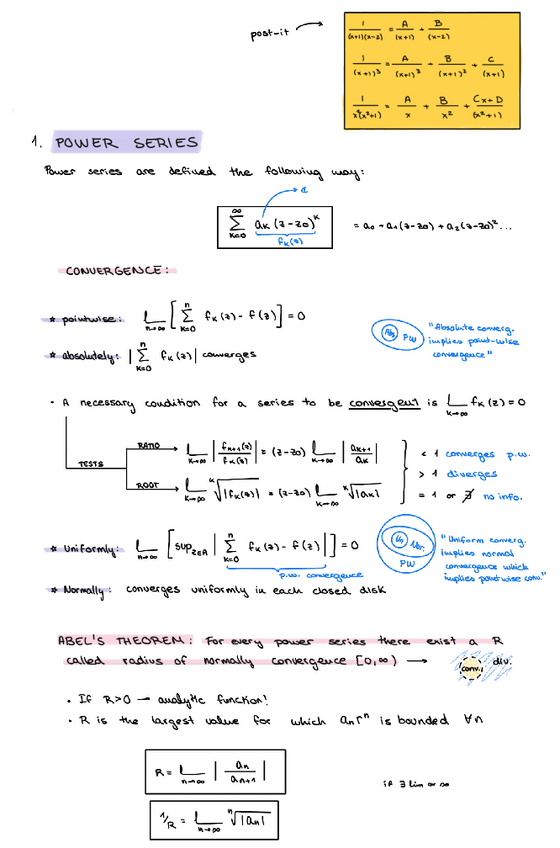 post-it
1/((x+1)(x-2)) = A/(x+1) + B/(x-2)
1/(x+1)³ = A/(x+1)³ + B/(x+1)² + C/(x+1)
1/(x²(x²+1)) = A/x + B/x² + (Cx+D)/(x²+1)
1. POWER SERIES
Power series are defined the following way:
∑_{k=0}^{∞} a_k (z-z0)^k = a0 + a1(z-z0) + a2(z-z0)² ...
f_k(z)
CONVERGENCE:
* pointwise: L_{n→∞} [ ∑_{k=0}^{n} f_k(z) - f(z) ] = 0
Abs PW
"Absolute converg.
implies point-wise
convergence"
* absolutely: | ∑_{k=0}^{n} f_k(z) | converges
• A necessary condition for a series to be convergent is L_{k→∞} f_k(z) = 0
TESTS
RATIO → L_{k→∞} | f_{k+1}(z) / f_k(z) | = (z-z0) L_{k→∞} | a_{k+1} / a_k |
ROOT → L_{k→∞} ᵏ√|f_k(z)| = (z-z0) L_{k→∞} ᵏ√|a_k|
< 1 converges p.w.
> 1 diverges
= 1 or ∄ no info.
* Uniformly: L_{n→∞} [ sup_{z∈A} | ∑_{k=0}^{n} f_k(z) - f(z) | ] = 0
p.w. convergence
Un Nor.
PW
"Uniform converg.
implies normal
convergence which
implies pointwise conv."
* Normally: converges uniformly in each closed disk
ABEL'S THEOREM: For every power series there exist a R
called radius of normally convergence [0,∞) → conv. div.
• If R>0 → analytic function!
• R is the largest value for which a_n r^n is bounded ∀n
R = L_{n→∞} | a_n / a_{n+1} |
if ∃ lim or ∞
1/R = L_{n→∞} ⁿ√|a_n|